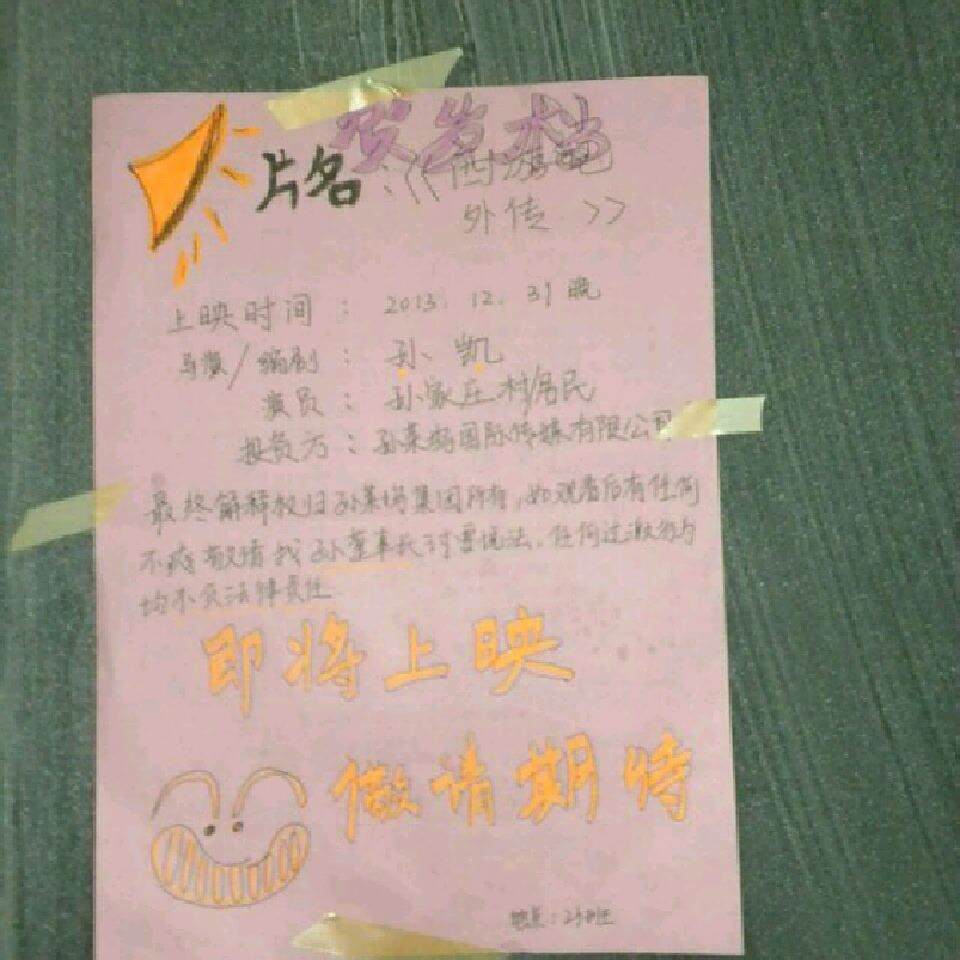 贺岁档
片名:《西游记
外传》
上映时间: 2013. 12. 31晚
导演/编剧: 孙凯
演员: 孙家庄村居民
投资方: 国际传媒有限公司
最终解释权归 集团所有,如观看后有任何
不疼敬请找孙董事长讨要说法.任何过激行为
均不负法律责任
即将上映
儆请期待
地点: